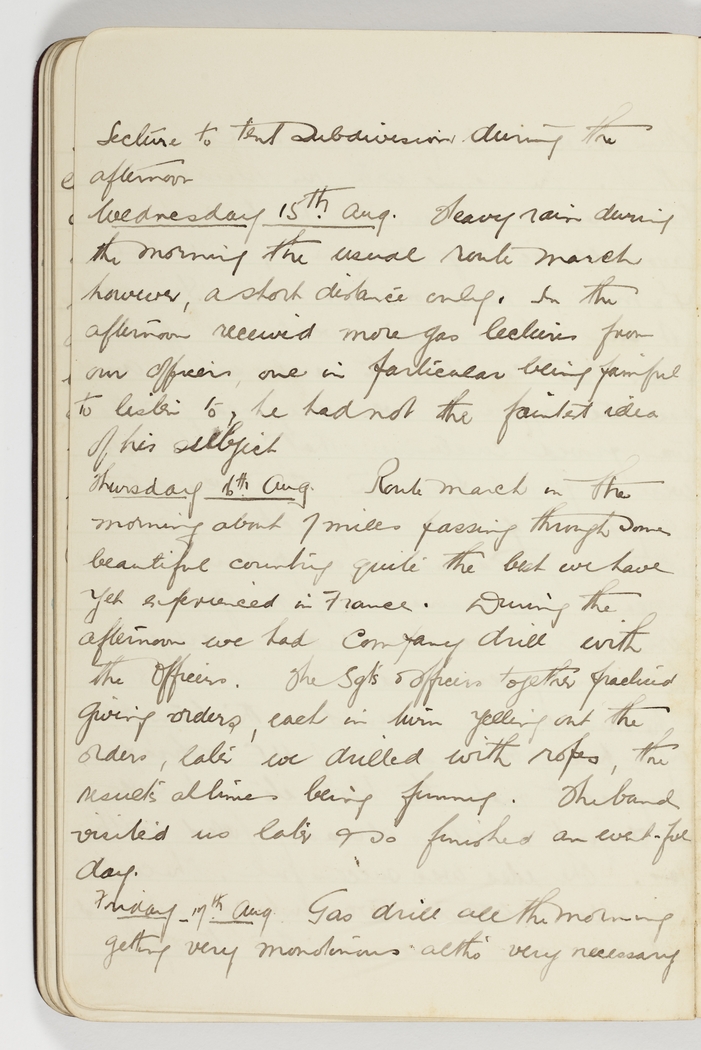 Lecture to tent subdivision during the
afternoon
Wednesday 15th Aug. Heavy rain during
the morning the usual route march
however, a short distance only. In the
afternoon received more gas lectures from
our officers, one in particular being painful
to listen to, he had not the faintest idea
of his subject
Thursday 16th Aug. Route march in the
morning about 7 miles passing through some
beautiful country quite the best we have
yet experienced in France. During the
afternoon we had Company drill with
the Officers. The Sgts & Officers together practised
giving orders, each in turn yelling out the
orders, later we drilled with ropes, the
results at times being funny. The band
visited us later & so finished an event-ful
day.
Friday 17th Aug. Gas drill all the morning
getting very monotonous altho very necessary